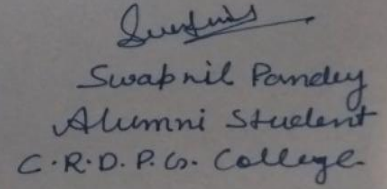 Swapnil Pandey
Alumni Student
C.R.D.P.G. College